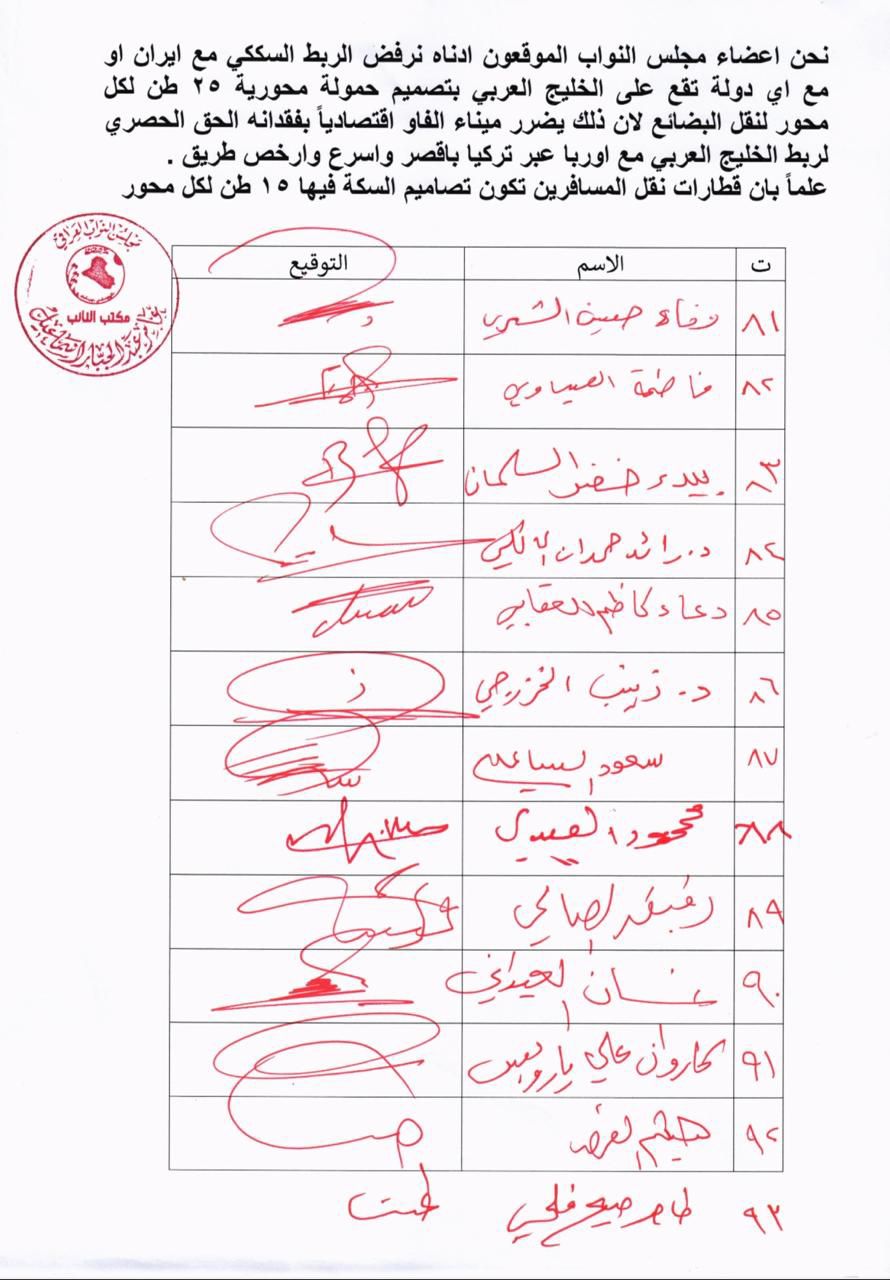 نحن اعضاء مجلس النواب الموقعون ادناه نرفض الربط السككي مع ايران او
مع اي دولة تقع على الخليج العربي بتصميم حمولة محورية ٢٥ طن لكل
محور لنقل البضائع لان ذلك يضرر ميناء الفاو اقتصادياً بفقدانه الحق الحصري
لربط الخليج العربي مع اوربا عبر تركيا باقصر واسرع وارخص طريق .
علماً بان قطارات نقل المسافرين تكون تصاميم السكة فيها ١٥ طن لكل محور
مجلس النواب العراقي
مكتب النائب
عامر عبد الجبار اسماعيل
ت الاسم التوقيع
٨١ وفاء حسين الشمري
٨٢ فاطمة العيساوي
٨٣ بيداء خضر السلمان
٨٤ د. رائد حمدان المالكي
٨٥ دعاء كاظم
٨٦ د. زينب الخزرجي
٨٧ سعود الساعدي
٨٨ محمود
٨٩ الصالحي
٩٠ العيداني
٩١ كاروان علي يارويس
٩٢ هيثم
٩٣